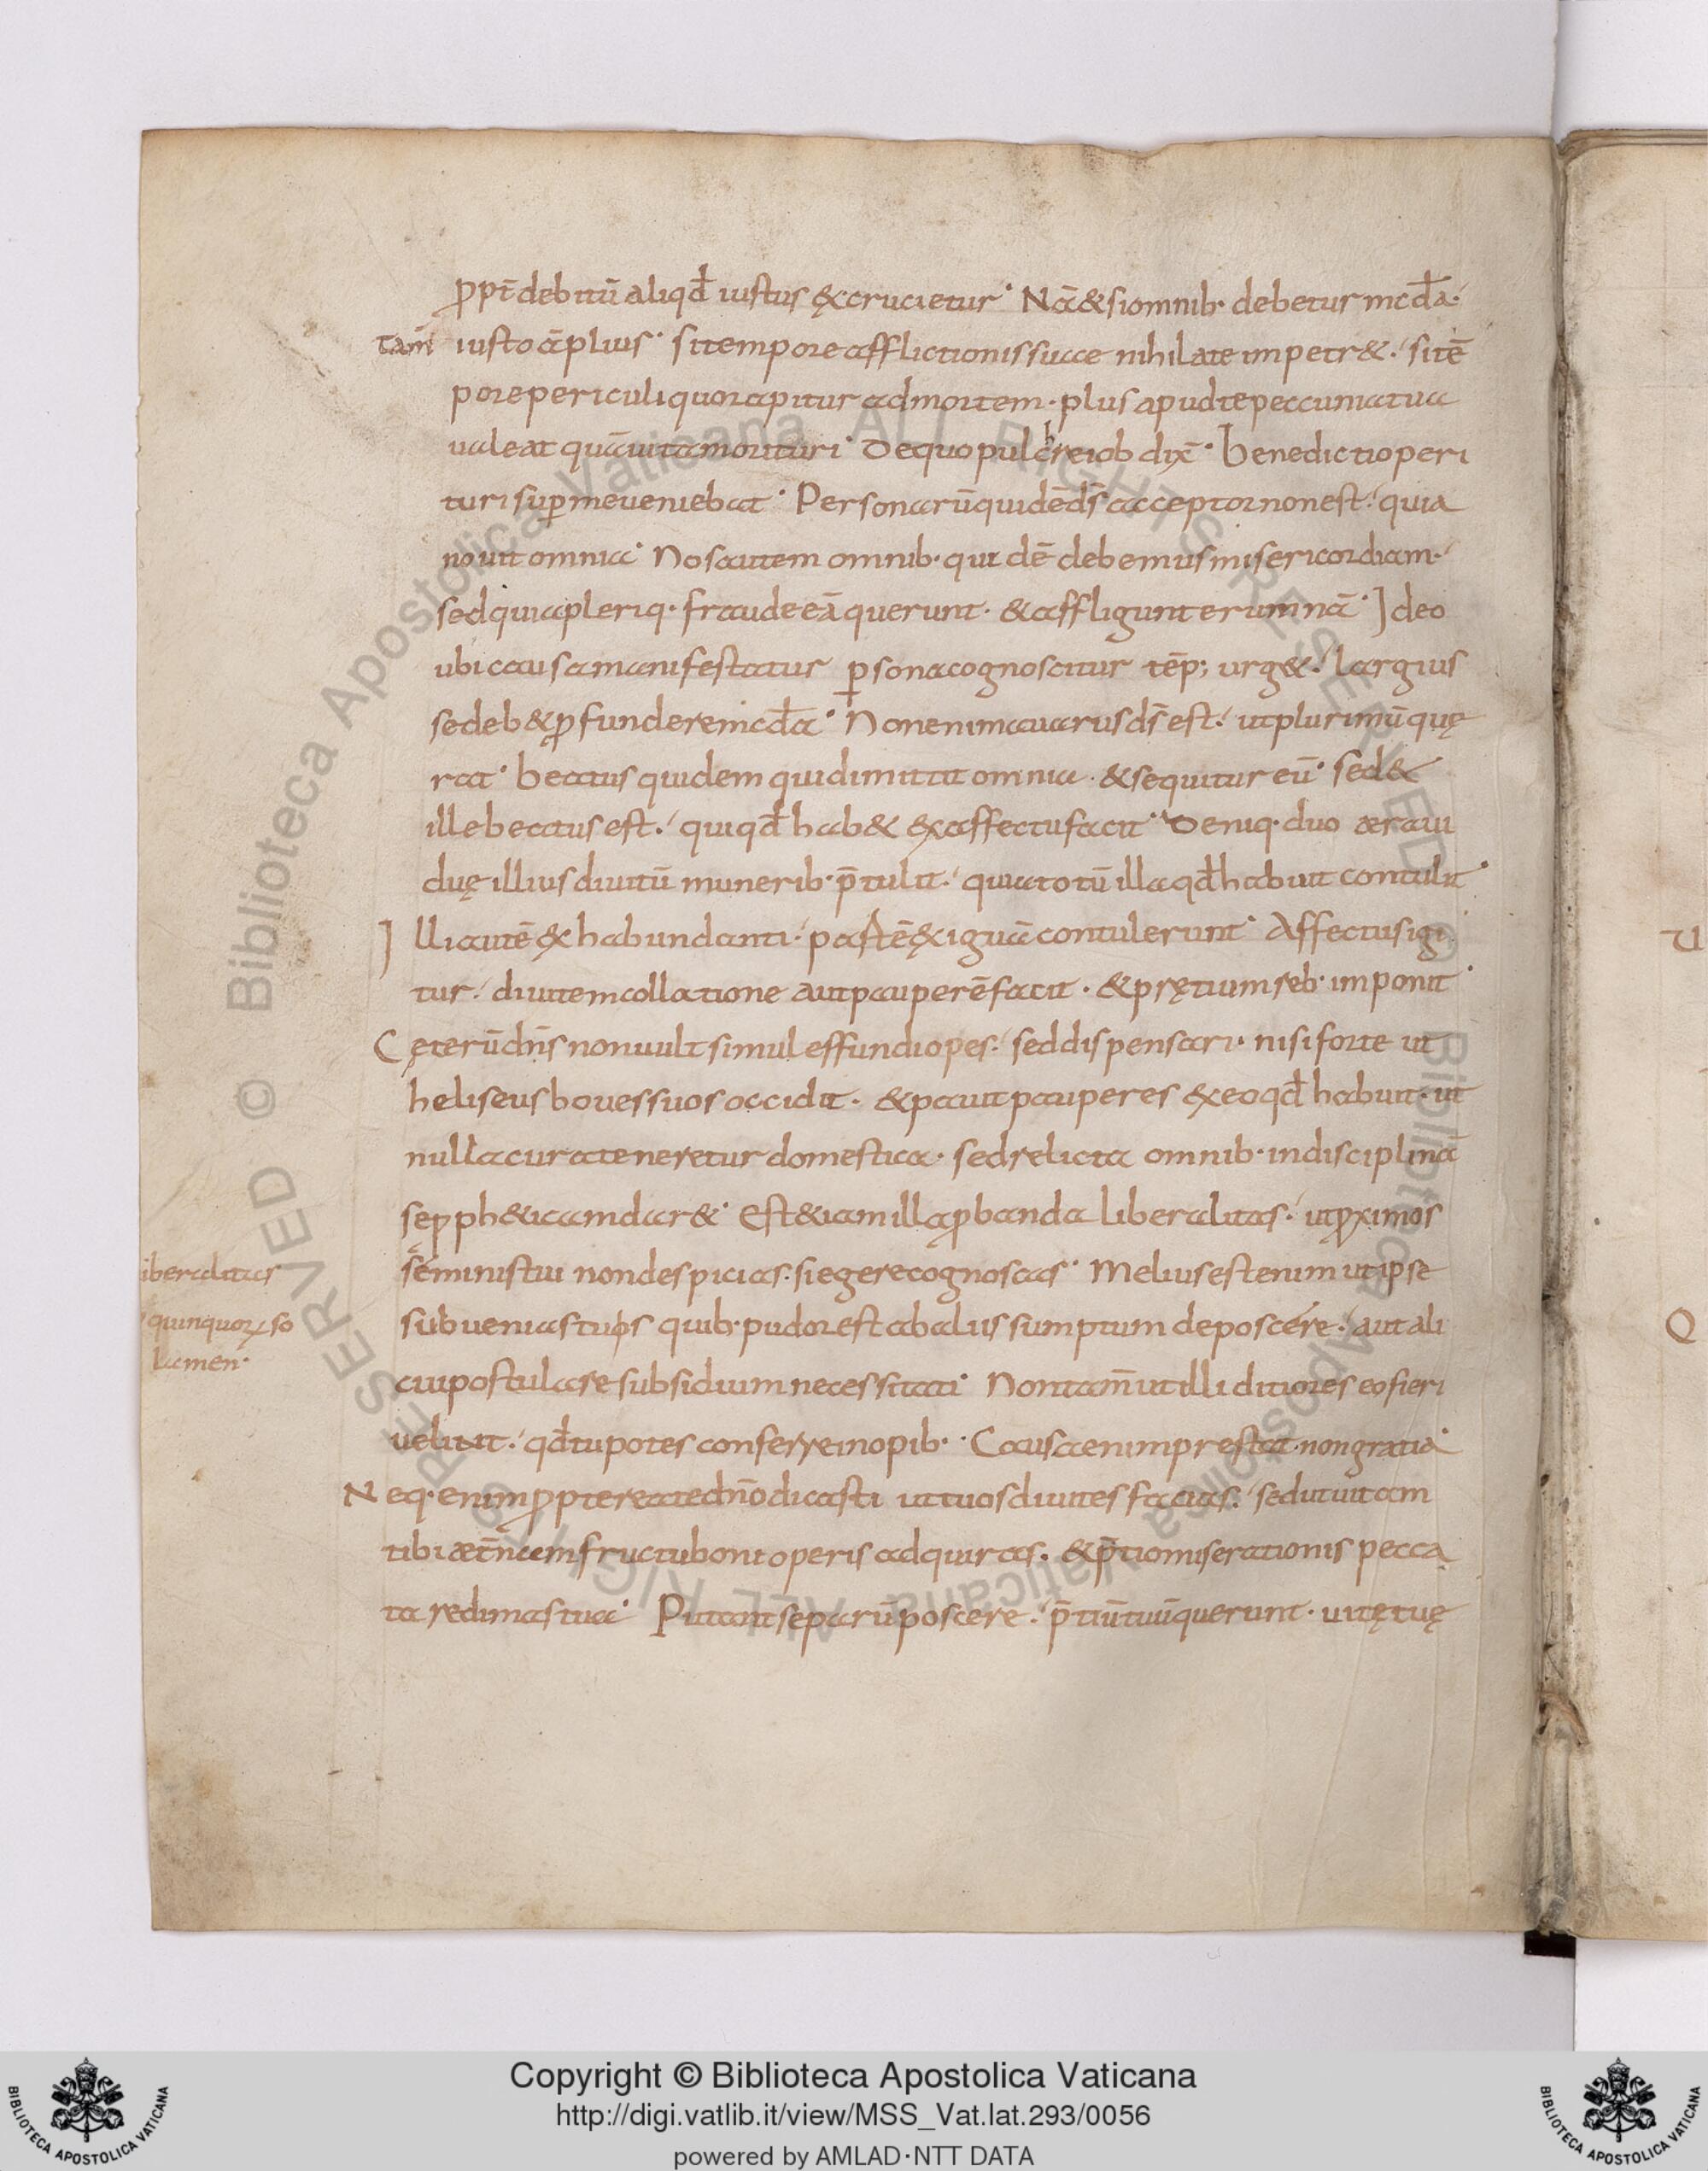 ꝓpt̄ debitū aliqđ iustus excrucietur· Nā & si omnib· debetur mcđa·
tam̄ iusto āplius· si tempore afflictionis succe nihil a te impetr&· si tē
pore periculi quo rapitur ad mortem· plus apud te peccunia tua
ualeat quā uita morituri· De quo pulchre iob dix̄· benedictio peri
turi suꝑ me ueniebat· Personarū quidē dš acceptor non est· quia
nouit omnia· Nos autem omnib· qui dē debemus misericordiam·
sed quia pleriq· fraude eā querunt· & affligunt erumnā· Ideo
ubi causa manifestatur ꝑsona cognoscitur tēp; urg&· largius
se deb& ꝓfundere mcđa· Non enim auarus dš est· ut plurimū quę
rat· beatus quidem qui dimittit omnia· & sequitur eū· sed &
ille beatus est· qui qđ hab& ex affectu facit· Deniq· duo æra ui
duę illius diuitū munerib· p̄tulit· quia totū illa qđ habuit contulit·
Illi autē ex habundanti· partē exiguā contulerunt· Affectus igi
tur· diuitem collatione aut pauperē facit· & pręтium reb· imponit·
Cęterū dn̄s non uult simul effundi opes· sed dispensari· nisi forte ut
heliseus boues suos occidit· & pauit pauperes ex eo qđ habuit· ut
nulla cura teneretur domestica· sed relicta omnib· in disciplinā
sę pph&icam dar&· Est &iam illa ꝓbanda liberalitas· ut ꝓximos
seminis tui non despicias· si egere cognoscas· Melius est enim ut ipse
iberalitas
quinquorū so
lamen·
subuenias tuis quib· pudor est ab aliis sumptum deposcere· aut ali
cui postulare subsidium necessitati· Non tam̄ ut illi ditiores eo fieri
uelint· qđ tu potes conferre inopib·· Causa enim prestat· non gratia·
Neq· enim ꝓpterea te dn̄o dicasti ut tuos diuites facias· sed ut uitam
tibi æt̄nam fructu boni operis adquiras· & p̄tio miserationis pecca
ta redimas tua· Putant se parū poscere· p̄tiū tuū querunt· uitę tuę
U
Q
Copyright © Biblioteca Apostolica Vaticana
http://digi.vatlib.it/view/MSS_Vat.lat.293/0056
powered by AMLAD·NTT DATA
BIBLIOTECA APOSTOLICA VATICANA
BIBLIOTECA APOSTOLICA VATICANA